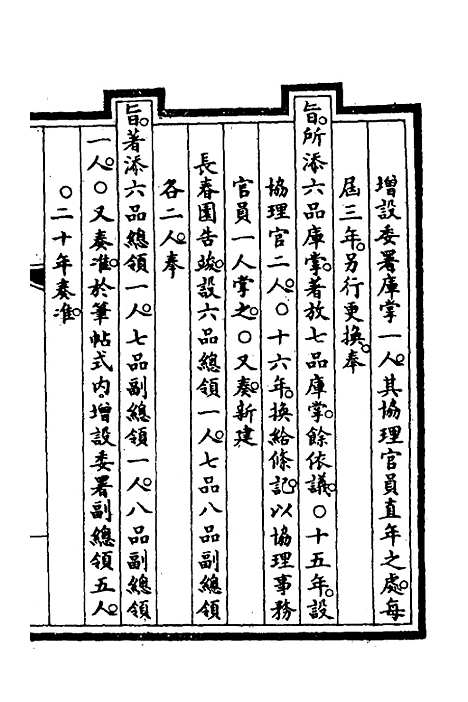 增設委署庫掌一人。其協理官員直年之處。每
屆三年。另行更換。奉
旨。所添六品庫掌。著放七品庫掌。餘依議。○十五年。設
協理官二人。○十六年。換給條記。以協理事務
官員一人掌之。○又奏。新建
長春園告竣。設六品總領一人。七品八品副總領
各二人。奉
旨。著添六品總領一人。七品副總領一人。八品副總領
一人。○又奏准。於筆帖式內。增設委署副總領五人。
○二十年奏准。